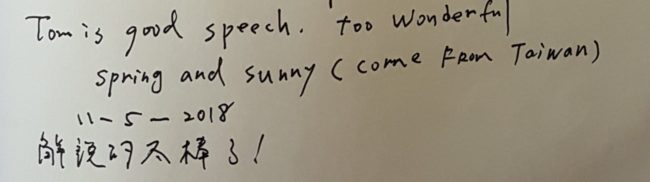 Tom is good speech. too wonderful
spring and sunny (come From Taiwan)
11-5-2018
解說的太棒了!